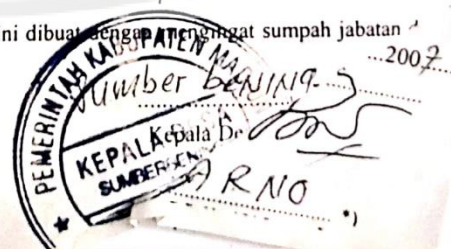 ni dibuat dengan mengingat sumpah jabatan
...2007
Sumber bening
Kepala De
ARNO
*)
PEMERINTAH KABUPATEN MA
KEPALA
SUMBER